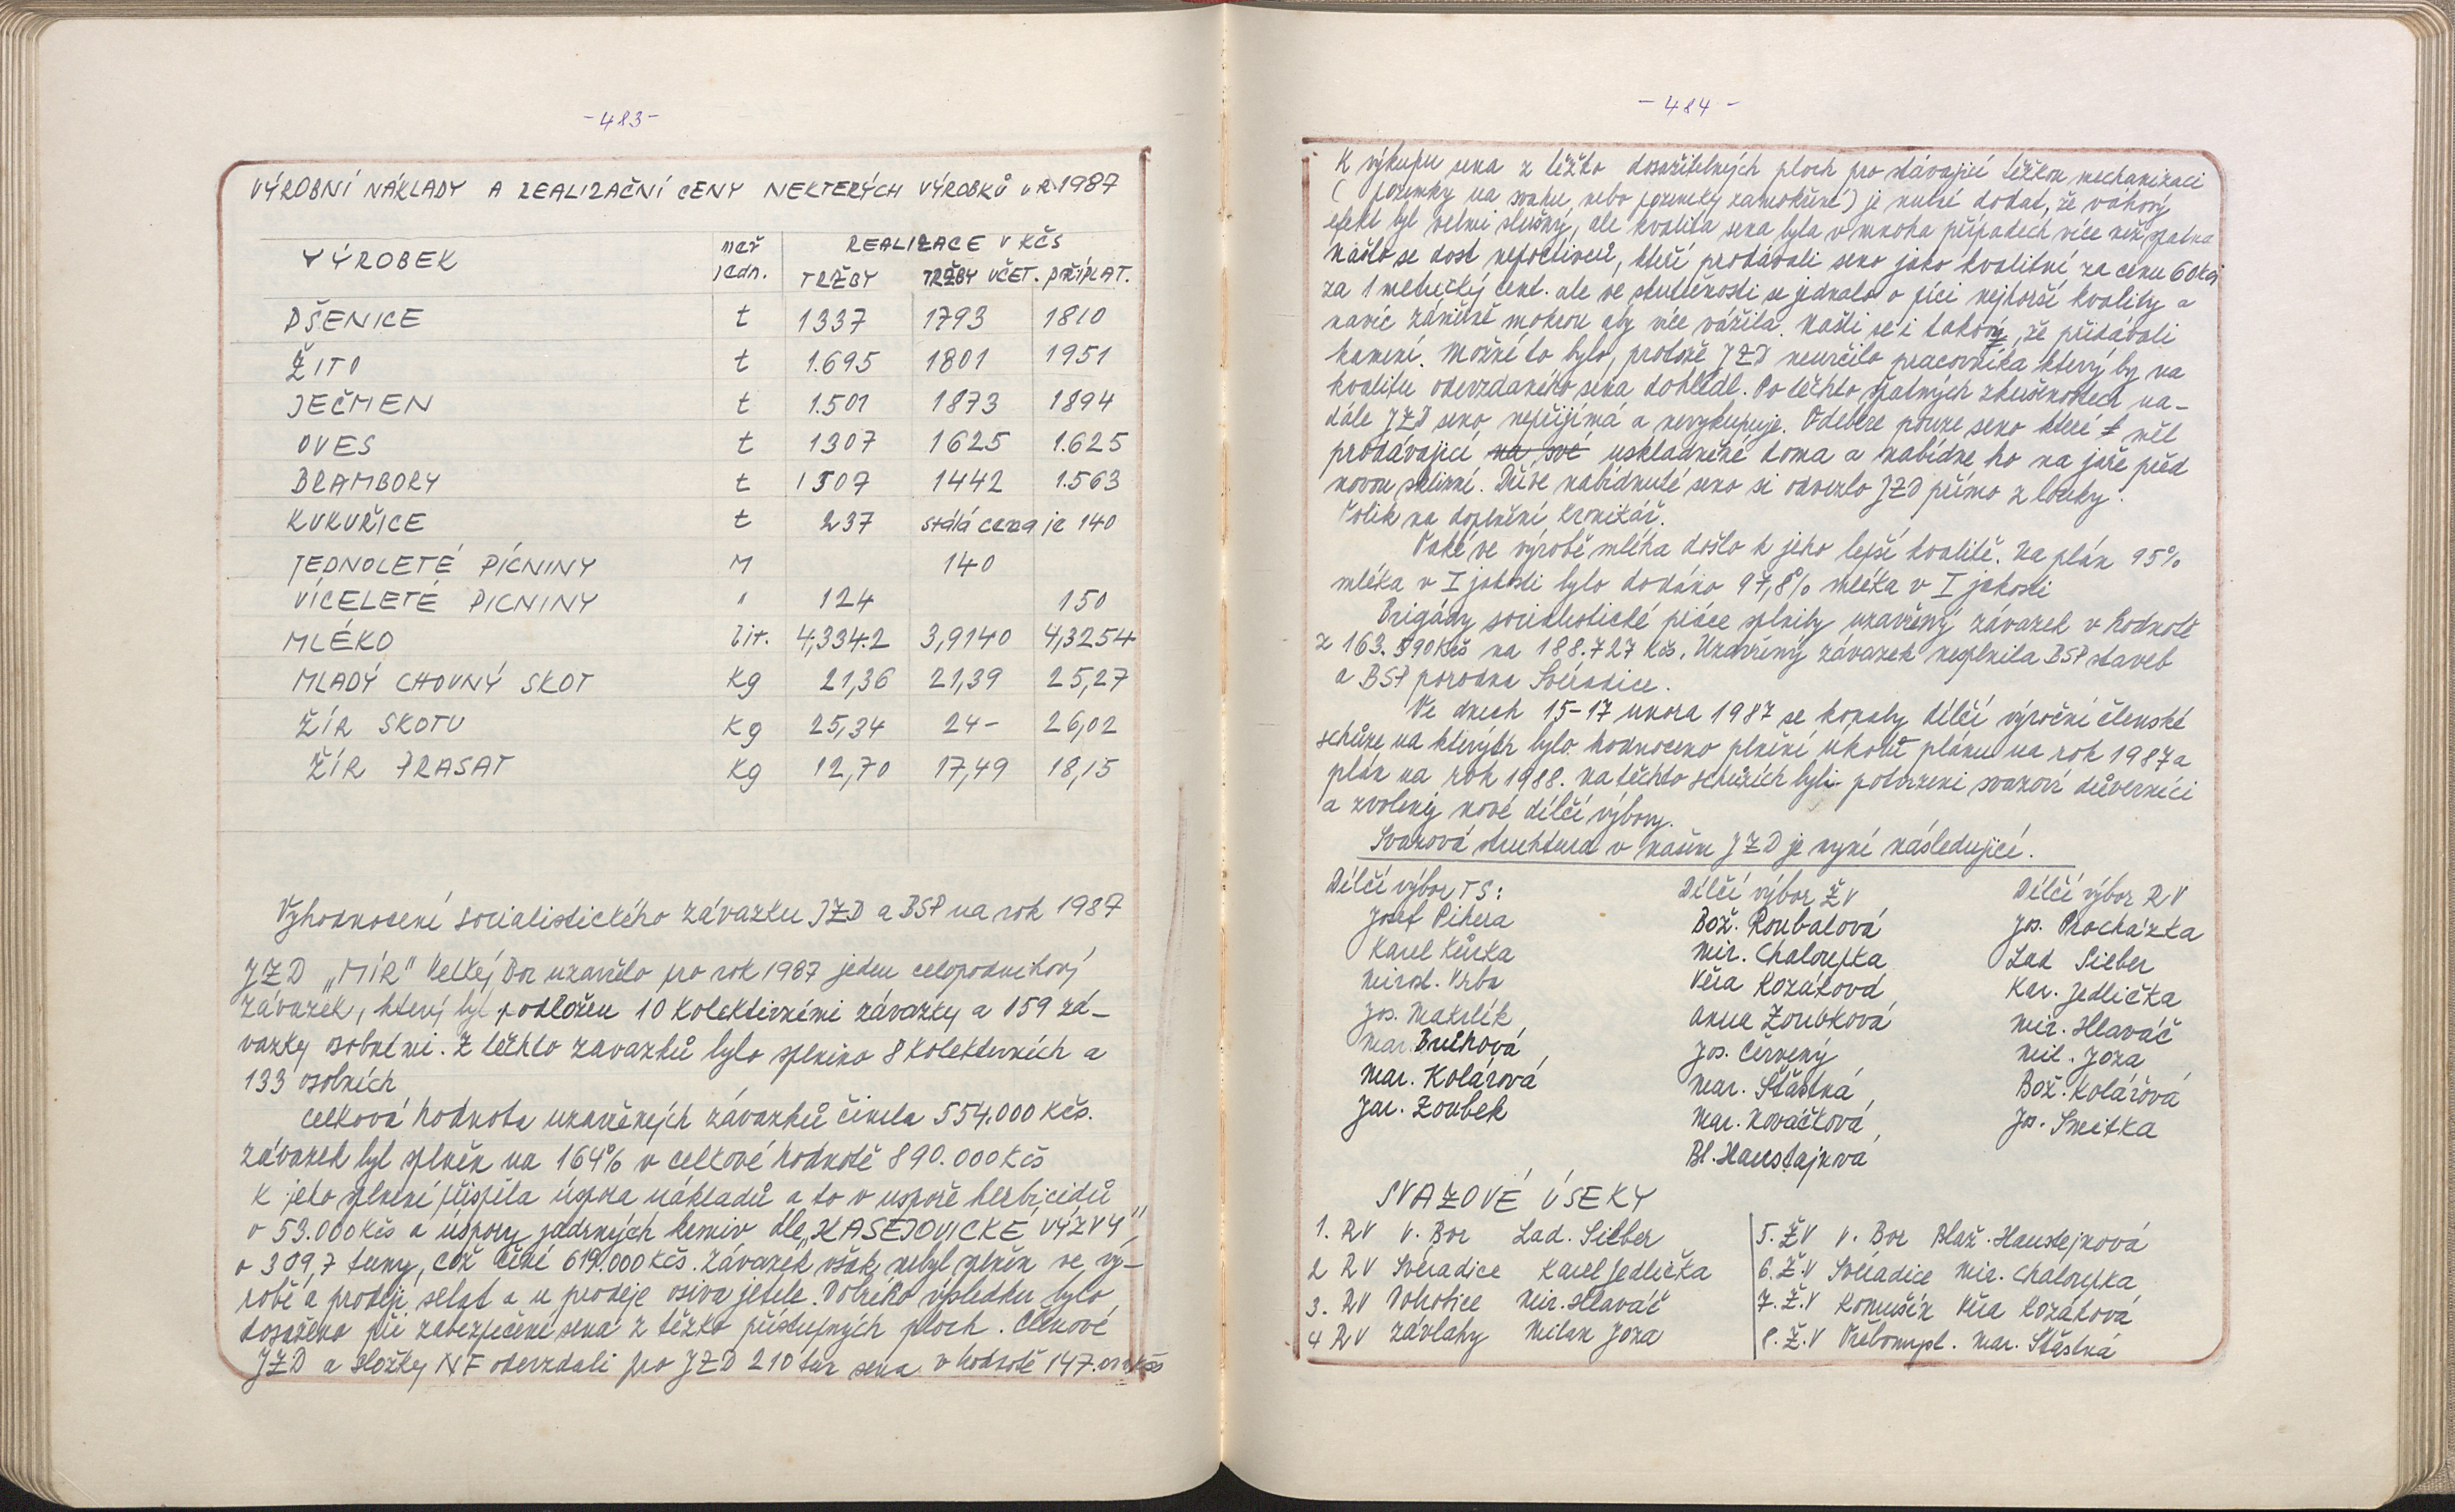 -483-
VÝROBNÍ NÁKLADY A REALIZAČNÍ CENY NEKTERÝCH VÝROBKŮ v R 1987
VÝROBEK měř jedn. REALIZACE V KČS
TRŽBY TRŽBY VČET. PŘÍPLAT.
PŠENICE t 1337 1793 1810
ŽITO t 1.695 1801 1951
JEČMEN t 1.501 1873 1894
OVES t 1307 1625 1.625
BRAMBORY t 1507 1442 1.563
KUKUŘICE t 237 stálá cena je 140
JEDNOLETÉ PÍCNINY M 140
VÍCELETÉ PICNINY " 124 150
MLÉKO lit. 4,334.2 3,9140 4,3254
MLADÝ CHOVNÝ SKOT Kg 21,36 21,39 25,27
ŽÍR SKOTU Kg 25,34 24- 26,02
ŽÍR PRASAT Kg 12,70 17,49 18,15
Vyhodnocení socialistického závazku JZD a BSP na rok 1987
JZD „MÍR" Velký Bor uzavřelo pro rok 1987 jeden celopodnikový
závazek, který byl podložen 10 kolektivními závazky a 159 zá-
vazky osobními. Z těchto zavazků bylo splněno 8 kolektivních a
133 osobních
Celková hodnota uzavřených závazků činila 554.000 Kčs.
závazek byl splněn na 164% v celkové hodnotě 890.000 Kčs
K jeho splnění přispěla úspora nákladů a to v uspoře herbicidů
o 53.000 Kčs a úspory jadrných krmiv dle „KASEJOVICKÉ VÝZVY"
o 309,7 tuny, což činí 619.000 Kčs. Závazek však nebyl splněn ve vý-
robě a prodeji selat a u prodeje osiva jetele. Dobrého výsledku bylo
dosaženo při zabezpečení sena z těžko přístupných ploch. Členové
JZD a složky NF odevzdali pro JZD 210 tun sena v hodnotě 147.000 Kčs
-484-
K výkupu sena z těžko dosažitelných ploch pro stávající těžkou mechanizaci
(pozemky na svahu, nebo pozemky zamokřené) je nutné dodat, že váhový
efekt byl velmi slušný, ale kvalita sena byla v mnoha případech více než špatná
Našlo se dost nepoctivců, kteří prodávali seno jako kvalitní za cenu 60 Kčs
za 1 metrický cent. ale ve skutečnosti se jednalo o píci nejhorší kvality a
navíc záměrně mokrou aby více vážila. Našli se i takový, že přidávali
kamení. Možné to bylo, protože JZD neurčilo pracovníka který by na
kvalitu odevzdaného sena dohlédl. Po těchto špatných zkušenostech na-
dále JZD seno nepřijímá a nevykupuje. Odebere pouze seno které měl
prodávající na své uskladněné doma a nabídne ho na jaře před
novou sklizní. Dříve nabídnuté seno si odvezlo JZD přímo z louky.
Tolik na doplnění kronikář.
Také ve výrobě mléka došlo k jeho lepší kvalitě. Na plán 95%
mléka v I jakosti bylo dodáno 97,8% mléka v I jakosti
Brigády socialistické práce splnily uzavřený závazek v hodnotě
z 163.590 Kčs na 188.727 Kčs. Uzavřený závazek nesplnila BSP staveb
a BSP porodna Svéradice.
Ve dnech 15-17 února 1987 se konaly dílčí výroční členské
schůze na kterých bylo hodnoceno plnění úkolů plánu na rok 1987 a
plán na rok 1988. na těchto schůzích byli potvrzeni svazoví důverníci
a zvoleny nové dílčí výbory.
Svazová struktura v našem JZD je nyní následující.
Dílčí výbor TS: Dílčí výbor ŽV Dílčí výbor RV
Josef Pihera Bož. Roubalová Jos. Procházka
Karel Kůrka Mir. Chaloupka Lad Sieber
Mirosl. Vrba Věra Kozáková Kar. Jedlička
Jos. Makrlík Anna Zoubková Mir. Hlaváč
Mar. Bruhová Jos. Červený Mil. Joza
Mar. Kolářová Mar. Šťastná Bož. Kolářová
Jar. Zoubek Mar. Kováčková Jos. Smitka
Bl. Haustajnová
SVAZOVÉ ÚSEKY
1. RV V. Bor Lad. Sieber 5. ŽV V. Bor Blaž. Haustejnová
2 RV Svéradice Karel Jedlička 6. Ž.V Svéradice Mir. Chaloupka
3. RV Dobrotice Mir. Hlaváč 7. Ž.V Komušín Věra Kozáková
4 RV závlahy Milan Joza 8. Ž.V Třebomysl. Mar. Šťastná